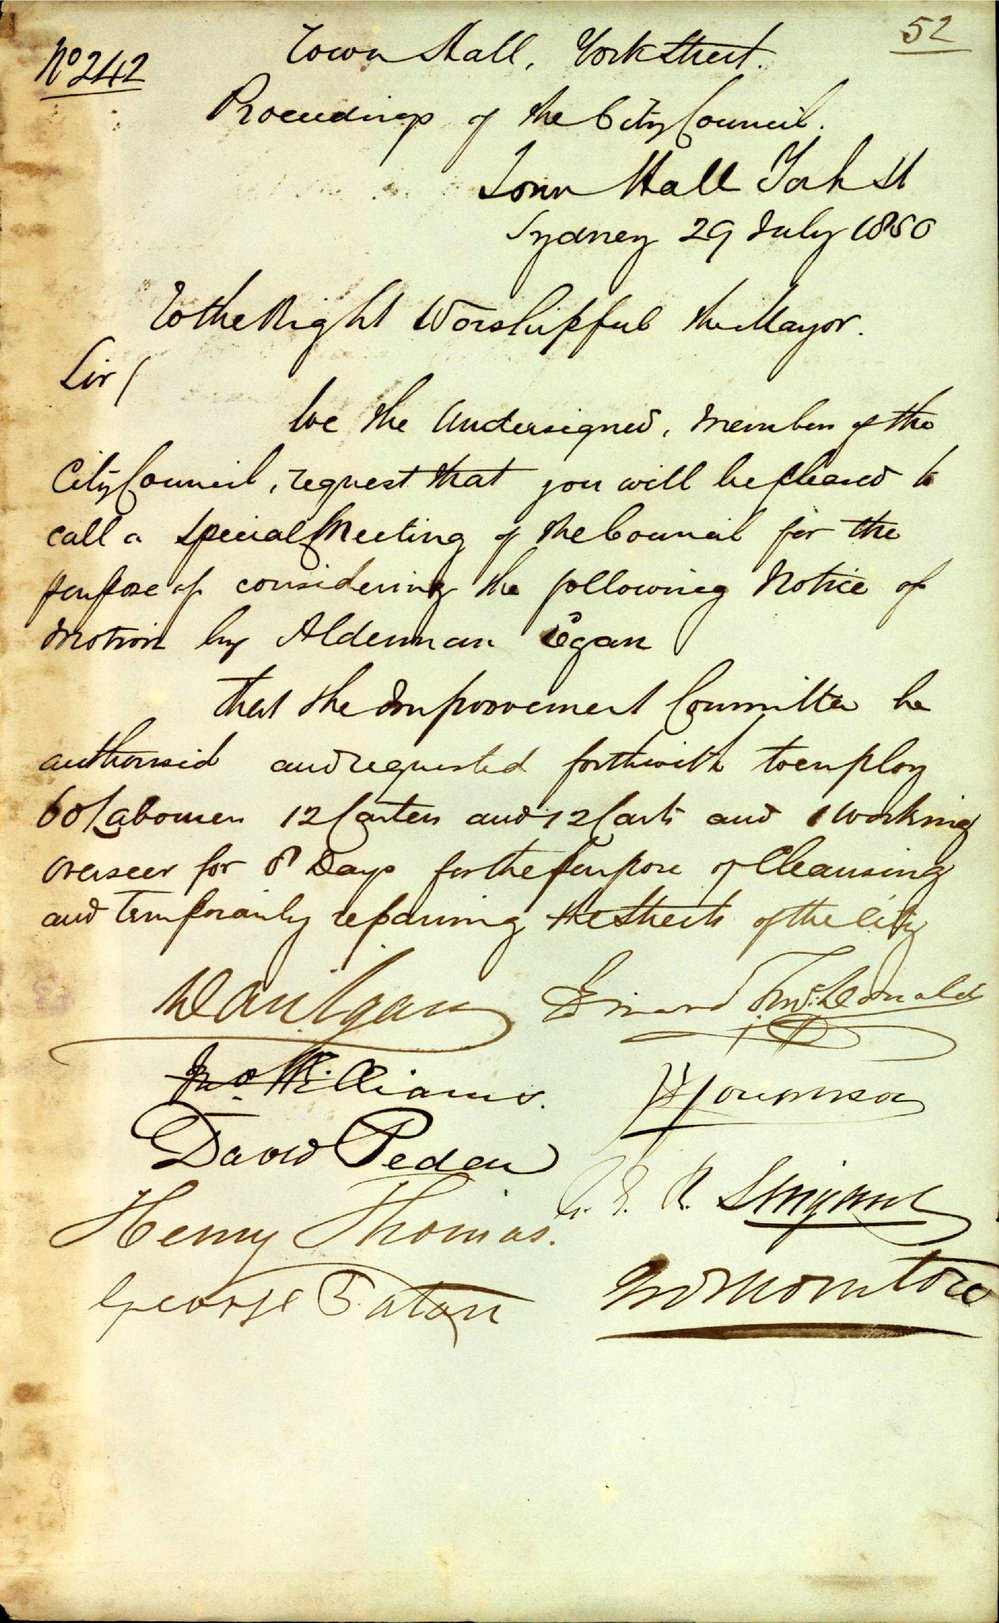 52
No 242
Town Hall, York Street.
Proceedings of the City Council.
Town Hall York St
Sydney 29 July 1850
To the Right Worshipful the Mayor.
Sir/
We the Undersigned, Members of the
City Council, request that you will be pleased to
call a Special Meeting of the Council for the
purpose of considering the following Notice of
Motion by Alderman Egan
that the Improvement Committee be
authorised and requested forthwith to employ
60 Labourers 12 Carters and 12 Carts and 1 working
overseer for 8 Days for the purpose of Cleansing
and temporarily repairing the Streets of the City
Danl Egan
Edward McDonald
Jno Williams.
David Peden
Henry Thomas.
George Paton